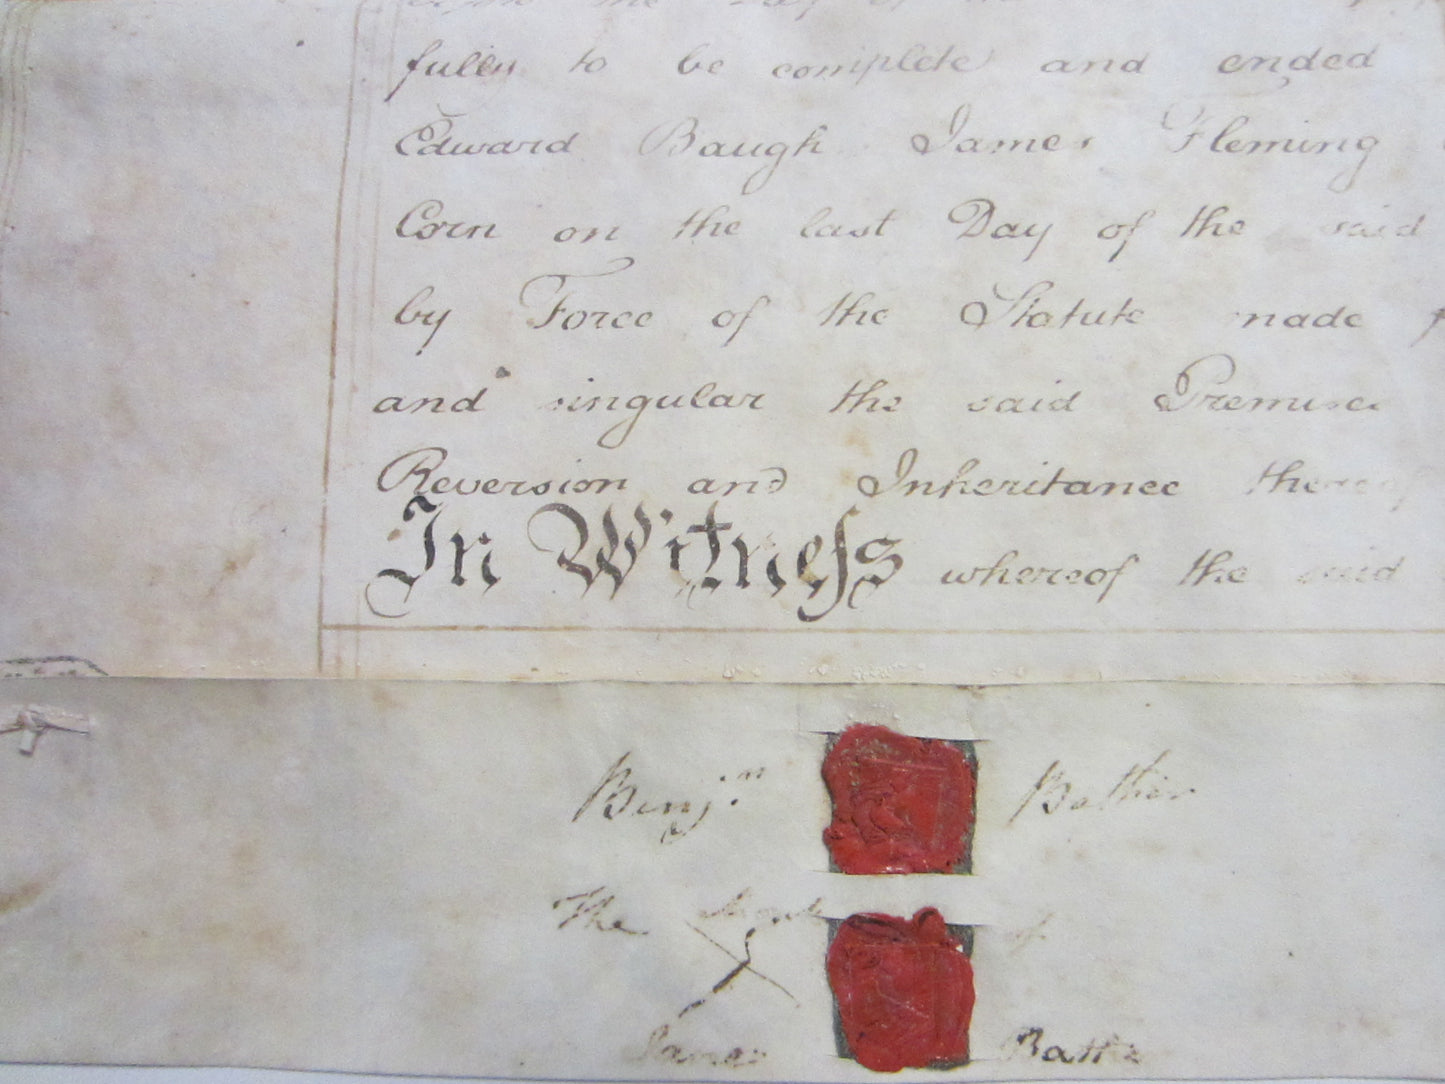 fully to be complete and ended
Edward Baugh James Fleming
Corn on the last Day of the said
by Force of the Statute made
and singular the said Premises
Reversion and Inheritance thereof
In Witness whereof the said
Benj.n Bather
The Mark of
James Bather